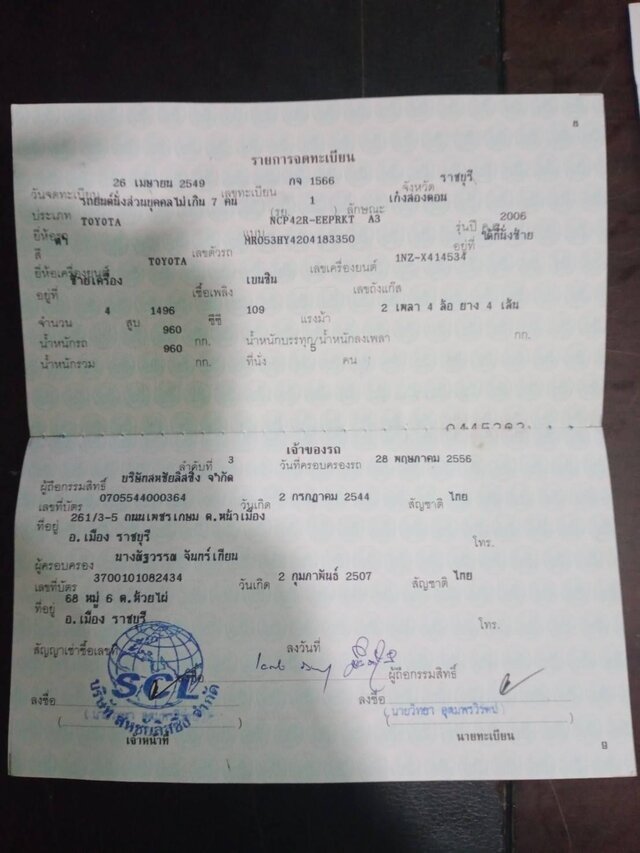 8
รายการจดทะเบียน
วันจดทะเบียน 26 เมษายน 2549 เลขทะเบียน กจ 1566 จังหวัด ราชบุรี
ประเภท รถยนต์นั่งส่วนบุคคลไม่เกิน 7 คน (รย. 1 ) ลักษณะ เก๋งสองตอน
ยี่ห้อรถ TOYOTA แบบ NCP42R-EEPRKT A3 รุ่นปี ค.ศ. 2006
สี ดำ เลขตัวรถ MR053HY4204183350 อยู่ที่ ใต้ที่นั่งซ้าย
ยี่ห้อเครื่องยนต์ TOYOTA เลขเครื่องยนต์ 1NZ-X414534
อยู่ที่ ซ้ายเครื่อง เชื้อเพลิง เบนซิน เลขถังแก๊ส
จำนวน 4 สูบ 1496 ซีซี 109 แรงม้า 2 เพลา 4 ล้อ ยาง 4 เส้น
น้ำหนักรถ 960 กก. น้ำหนักบรรทุก/น้ำหนักลงเพลา กก.
น้ำหนักรวม 960 กก. ที่นั่ง 5 คน
เจ้าของรถ
ลำดับที่ 3 วันที่ครอบครองรถ 28 พฤษภาคม 2556
ผู้ถือกรรมสิทธิ์ บริษัทสหชัยลิสซิ่ง จำกัด
เลขที่บัตร 0705544000364 วันเกิด 2 กรกฎาคม 2544 สัญชาติ ไทย
ที่อยู่ 261/3-5 ถนนเพชรเกษม ต.หน้าเมือง
อ.เมือง ราชบุรี โทร.
ผู้ครอบครอง จันทร์เทียน
เลขที่บัตร 3700101082434 วันเกิด 2 กุมภาพันธ์ 2507 สัญชาติ ไทย
ที่อยู่ 68 หมู่ 6 ต.ห้วยไผ่
อ.เมือง ราชบุรี โทร.
สัญญาเช่าซื้อเลขที่ ลงวันที่
ผู้ถือกรรมสิทธิ์
SCL
ลงชื่อ ลงชื่อ
บริษัท สหชัยลิสซิ่ง จำกัด
(นายวิทยา
เจ้าหน้าที่ นายทะเบียน
9